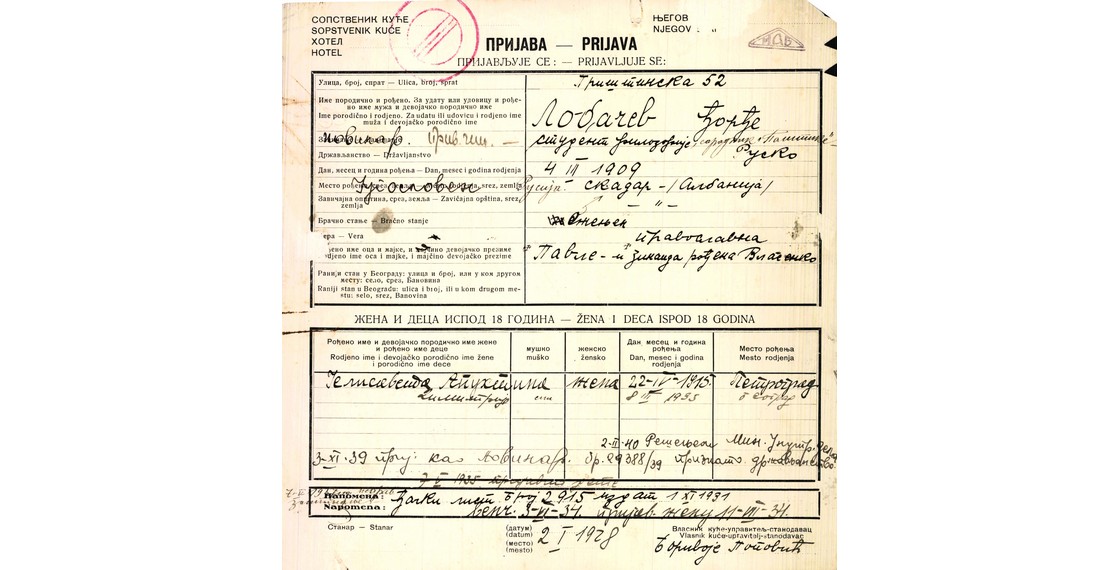 СОПСТВЕНИК КУЋЕ
SOPSTVENIK KUĆE
ХОТЕЛ
HOTEL
ЊЕГОВ
NJEGOV „
ПРИЈАВА — PRIJAVA
ПРИЈАВЉУЈЕ СЕ: — PRIJAVLJUJE SE:
Улица, број, спрат — Ulica, broj, sprat
Приштинска 52
Име породично и рођено. За удату или удовицу и рође-
но име мужа и девојачко породично име
Ime porodično i rodjeno. Za udatu ili udovicu i rodjeno ime
muža i devojačko porodično ime
Лобачев Ђорђе
новинар. прив. чин. —
студент филозофије сарадник „Политике“
Држављанство — Državljanstvo
Руско
Дан, месец и година рођења — Dan, mesec i godina rodjenja
4 III 1909
Место рођења, срез, земља
Југословен
Русија. Скадар - (Албанија)
Завичајна општина, срез, земља — Zavičajna opština, srez,
zemlja
— „ —
Брачно стање — Bračno stanje
ожењен
ера — Vera
православна
ђено име оца и мајке, и мајчино девојачко презиме
djeno ime oca i majke, i majčino devojačko prezime
Павле - и Зинаида рођена Влаченко
Ранији стан у Београду: улица и број, или у ком другом
месту: село, срез, Бановина
Raniji stan u Beogradu: ulica i broj, ili u kom drugom me-
stu: selo, srez, Banovina
ЖЕНА И ДЕЦА ИСПОД 18 ГОДИНА — ŽENA I DECA ISPOD 18 GODINA
Рођено име и девојачко породично име жене
и рођено име деце
Rodjeno ime i devojačko porodično ime žene
i porodično ime dece
мушко
muško
женско
žensko
Дан, месец и година
рођења
Dan, mesec i godina
rodjenja
Место рођења
Mesto rodjenja
Јелисавета Апухтина жена 22-IV-1915 Петроград
Димитрије син 8 III 1935 Београд
2-II-40 Решењем Мин. Унутр. дела
3-XI-39 приј. као новинар. бр. 29388/39 признато држављанство
Напомена:
Napomena:
Ђачки лист број 2.915 издат 1 XI 1931
венч. 3-VI-34. пријав. жену 11-III-34.
Станар — Stanar
(датум)
(datum)
(место)
(mesto)
2 I 1928
Власник куће-управитељ-станодавац
Vlasnik kuće-upravitelj-stanodavac
Боривоје Поповић